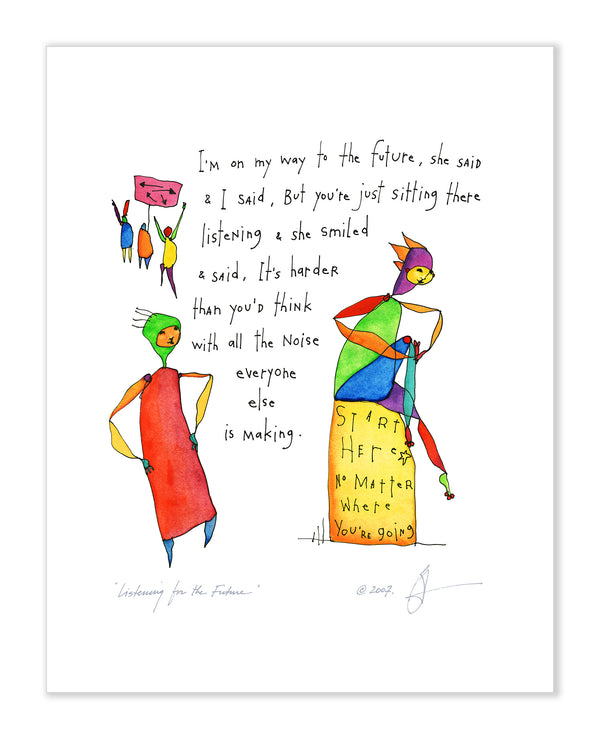 I'm on my way to the future, she said
& I said, But you're just sitting there
listening & she smiled
& said, It's harder
than you'd think
with all the noise
everyone
else
is making.
START
HERE
No MATTER
Where
You're going
"Listening for the Future"
© 2007.